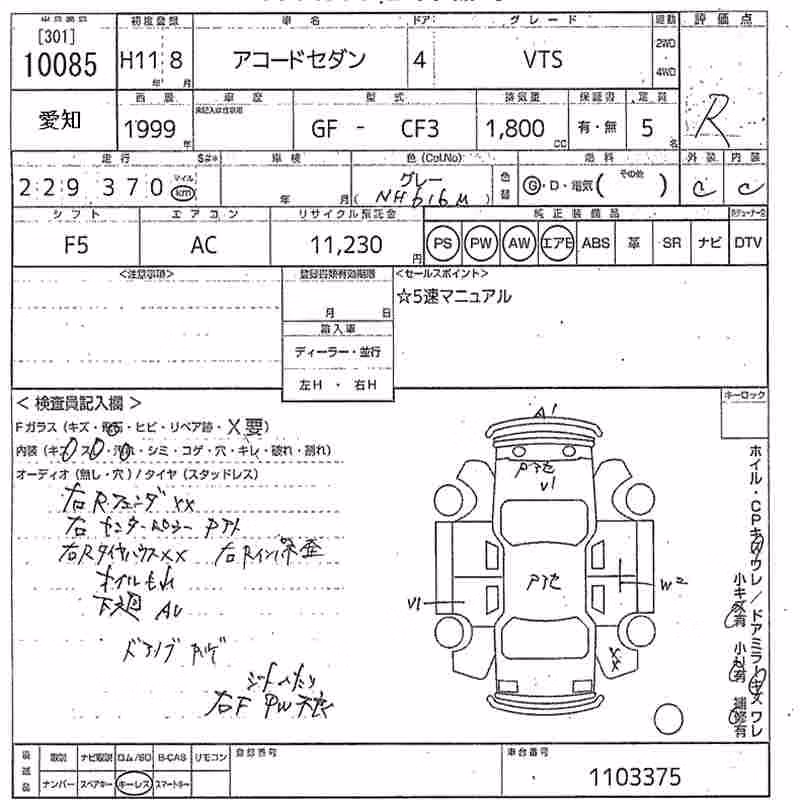 初度登録 車名 ドア グレード 駆動 評価点
[301]
10085 H11 8 アコードセダン 4 VTS 2WD 4WD
年 月
西暦 車歴 型式 排気量 保証書 定員 R
愛知 1999 年 GF - CF3 1,800 CC 有・無 5 名
走行 $#* 車検 色(Col.No) 燃料 外装 内装
229370 マイル km 年 月 グレー (NH616M) 色替 G・D・電気( その他 ) C C
シフト エアコン リサイクル預託金 純正装備品
F5 AC 11,230 円 PS PW AW エアB ABS 革 SR ナビ DTV
<注意事項> 登録書類有効期限 <セールスポイント>
月 日 ☆5速マニュアル
輸入車
ディーラー・並行
左H ・ 右H
<検査員記入欄> キーロック
Fガラス(キズ・飛石・ヒビ・リペア跡・X要)
内装(キズ・スレ・汚れ・シミ・コゲ・穴・キレ・破れ・割れ)
オーディオ(無し・穴)/タイヤ(スタッドレス)
右Rフェンダ XX
右センターピラー P跡
右RタイヤハウスXX 右Rインパネ
オイルもれ
下廻 AU
シートへたり
右F PW不良
A1
V1
V1
W2
XX
ホイル・CPキズ ワレ/ドアミラーキズ ワレ
小キズ有 小凹有 補修有
後送品 取説 ナビ取説 ロム/SD B-CAS リモコン 登録番号 車台番号
ナンバー スペアキー キーレス スマートキー 1103375